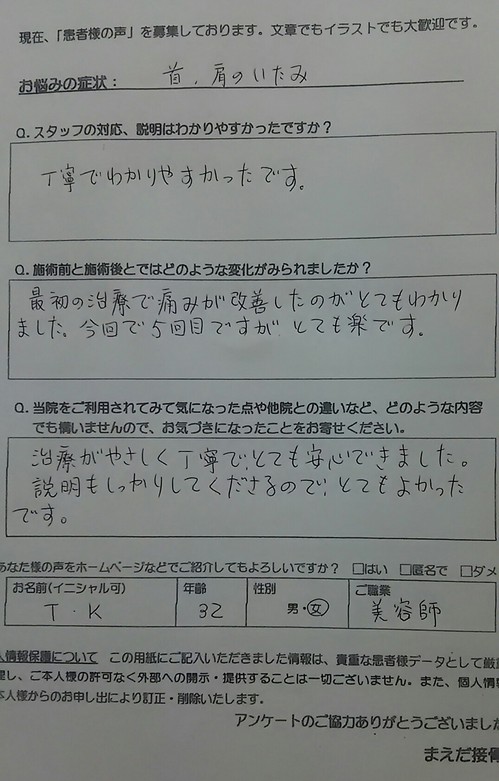 現在、「患者様の声」を募集しております。文章でもイラストでも大歓迎です。
お悩みの症状： 首、肩のいたみ
Q. スタッフの対応、説明はわかりやすかったですか？
丁寧でわかりやすかったです。
Q. 施術前と施術後とではどのような変化がみられましたか？
最初の治療で痛みが改善したのがとてもわかり
ました。今回で5回目ですが、とても楽です。
Q. 当院をご利用されてみて気になった点や他院との違いなど、どのような内容
でも構いませんので、お気づきになったことをお寄せください。
治療がやさしく丁寧で、とても安心できました。
説明もしっかりしてくださるので、とてもよかった
です。
あなた様の声をホームページなどでご紹介してもよろしいですか？ □はい □匿名で □ダメ
お名前(イニシャル可) 年齢 性別 ご職業
T・K 32 男・女 美容師
人情報保護について この用紙にご記入いただきました情報は、貴重な患者様データとして厳重
理し、ご本人様の許可なく外部への開示・提供することは一切ございません。また、個人情報
本人様からのお申し出により訂正・削除いたします。
アンケートのご協力ありがとうございました
まえだ接骨